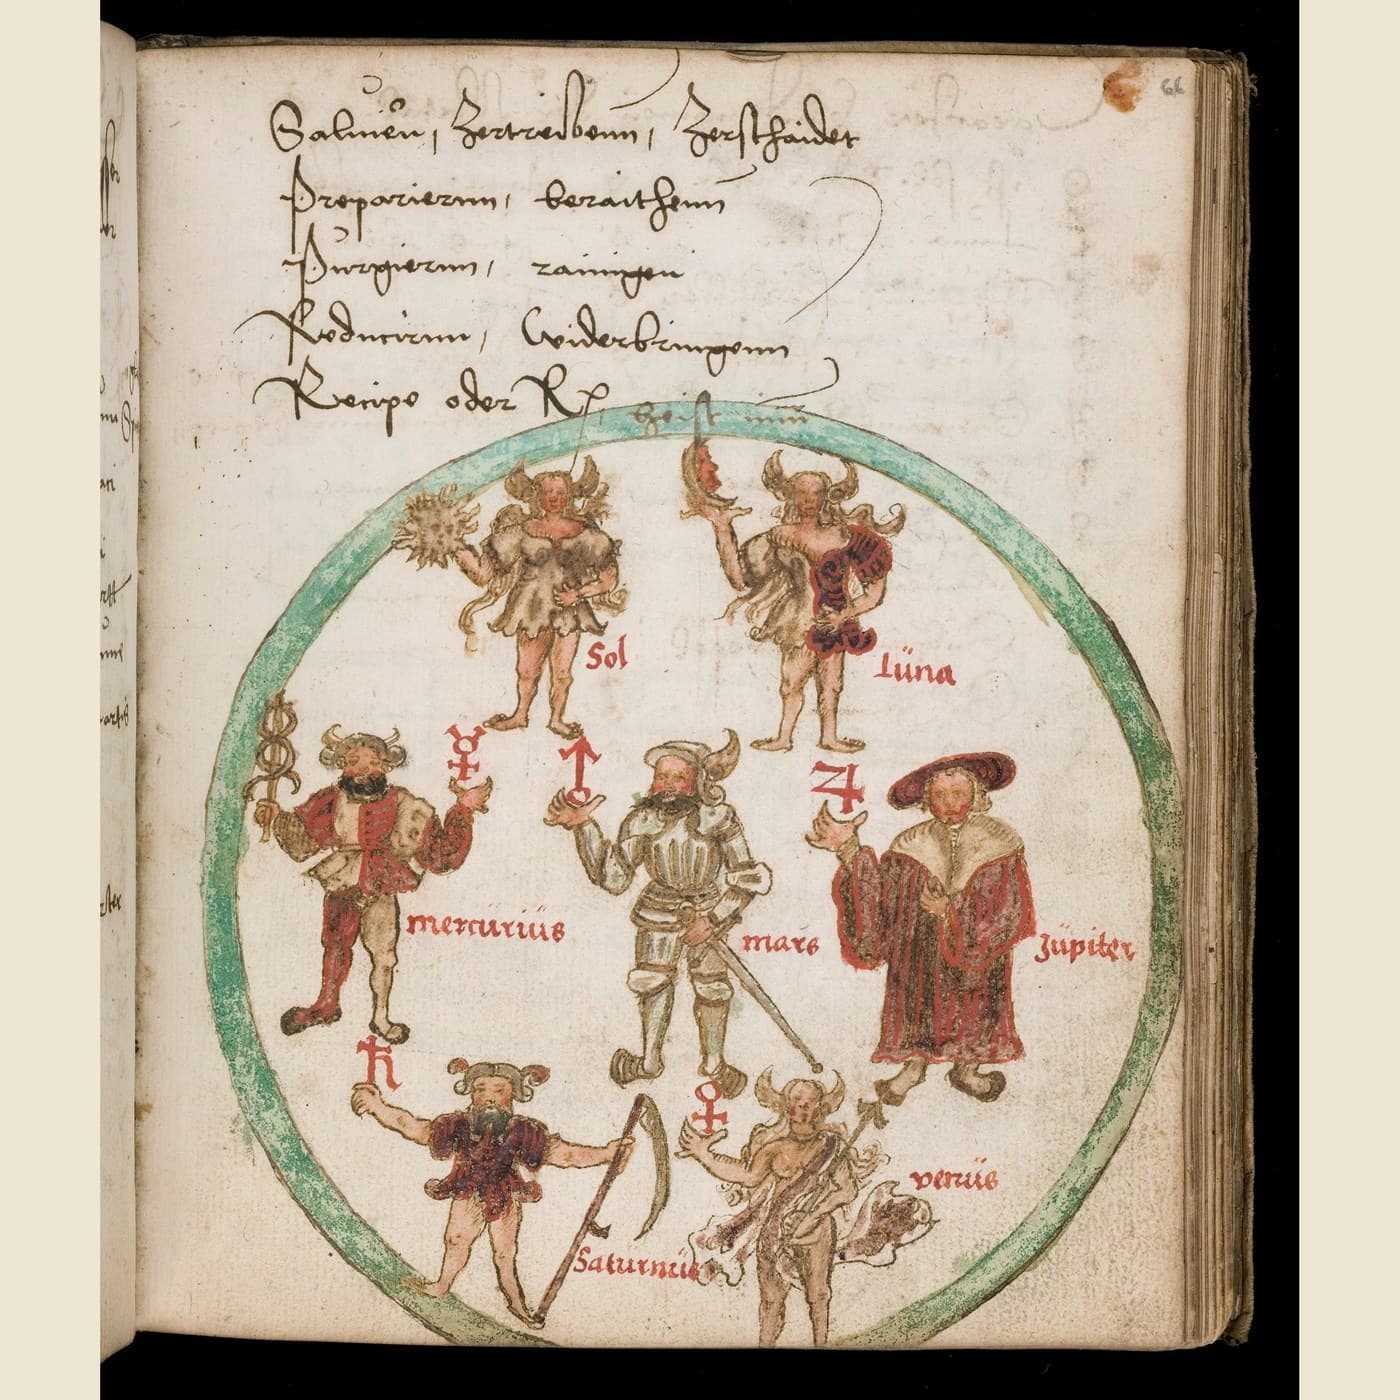 Salmien, Zertreibenn, Zerschaidet
Prepariernn, beraithenn
Purgiernn, rainigen
Reducirnn, Widerbringenn
Recipe oder Rp, heist
66
Sol
Lüna
mercüriüs
mars
Jüpiter
Saturnüs
venüs